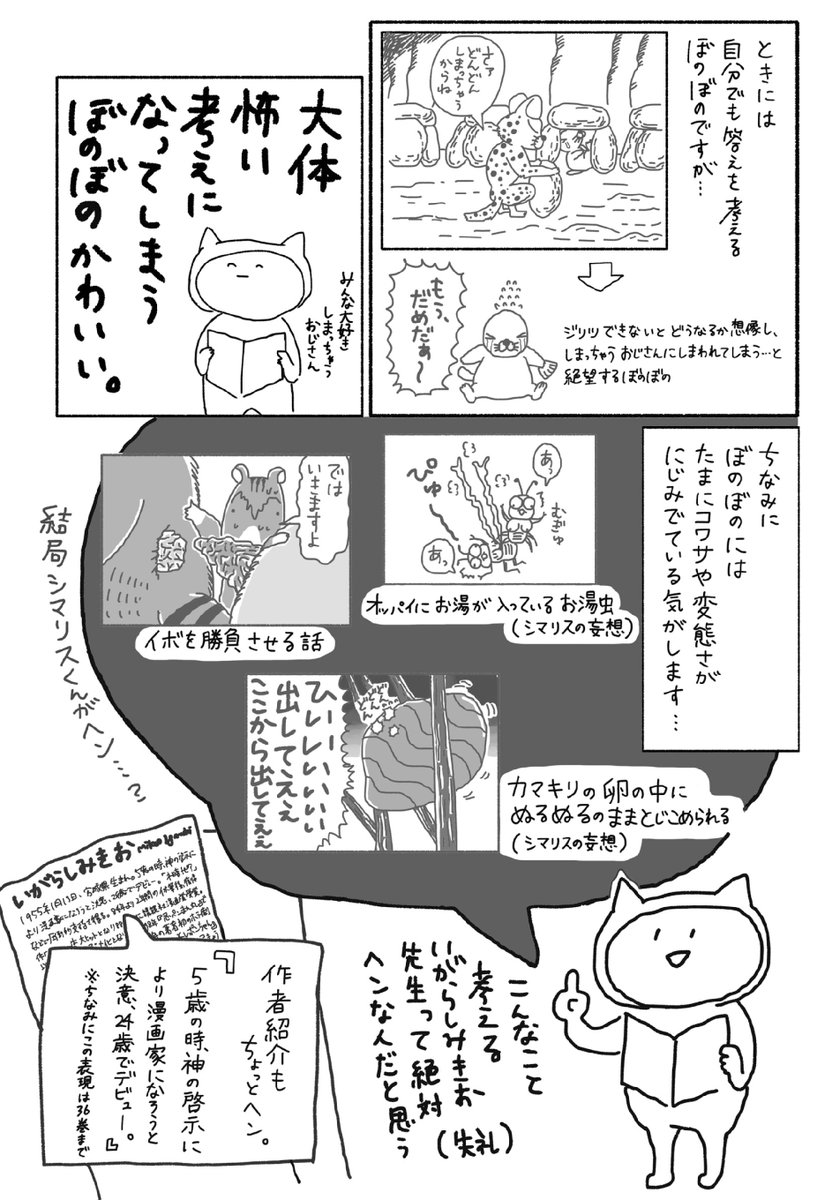 ときには
自分でも答えを考える
ぼのぼのですが…
さァ
どんどん
しまっちゃう
からね
もう、
だめだぁ〜
ジリツできないとどうなるか想像し、
しまっちゃうおじさんにしまわれてしまう…と
絶望するぼのぼの
大体
怖い
考えに
なってしまう
ぼのぼのかわいい。
みんな大好き
しまっちゃう
おじさん
ちなみに
ぼのぼのには
たまにコワサや変態さが
にじみでている気がします…
あっ
むぎゅ
ぴゅー
あっ
オッパイにお湯が入っているお湯虫
(シマリスの妄想)
では
いきますよ
イボを勝負させる話
ひいーいいいい
出してえぇ
ここから出してえぇ
カマキリの卵の中に
ぬるぬるのままとじこめられる
(シマリスの妄想)
結局シマリスくんがヘン…?
こんなこと
考える
いがらしみきお
先生って絶対
ヘンなんだと思う
(失礼)
いがらしみきお
作者紹介も
ちょっとヘン。
『5歳の時、神の啓示に
より漫画家になろうと
決意、24歳でデビュー。』
※ちなみにこの表現は36巻まで